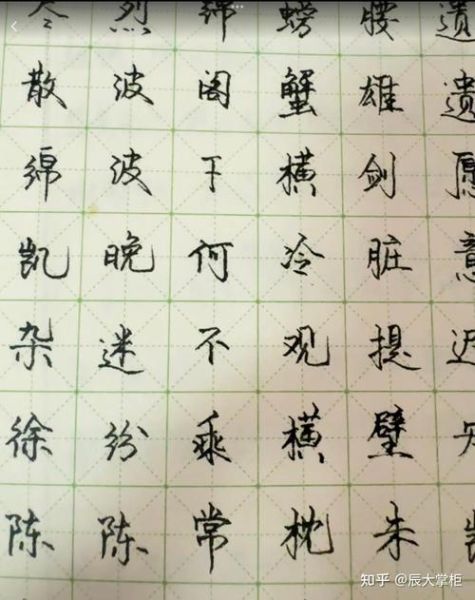 烈绵螃腰遗
散波阁蟹雄遗
绵波下横剑愿
凯晚何冷脏意
杂迷不观提近
徐纷乘横壁
陈陈常枕未
知乎 @辰大掌柜